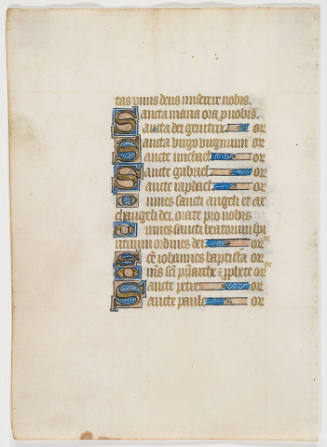 tas unus deus miserere nobis.
Sancta maria ora p nobis.
Sancta dei genitrix or
Sancta virgo virginum or
Sancte michael or
Sancte gabriel or
Sancte raphael or
Omnes sancti angeli et ar
changeli dei orate pro nobis
Omnes sancti beatorum spi
rituum ordines dei or
Sce iohannes baptista or
Oms sci patriarche
Sancte petre or
Sancte paule or